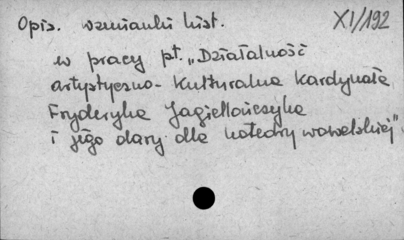 Opis. wzmianki hist. XI/192
w pracy pt. „Działalność
artystyczno-kulturalna Kardynała
Fryderyka Jagiellończyka
i jego dary dla katedry wawelskiej"